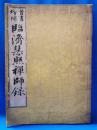 臨濟慧照禪師錄